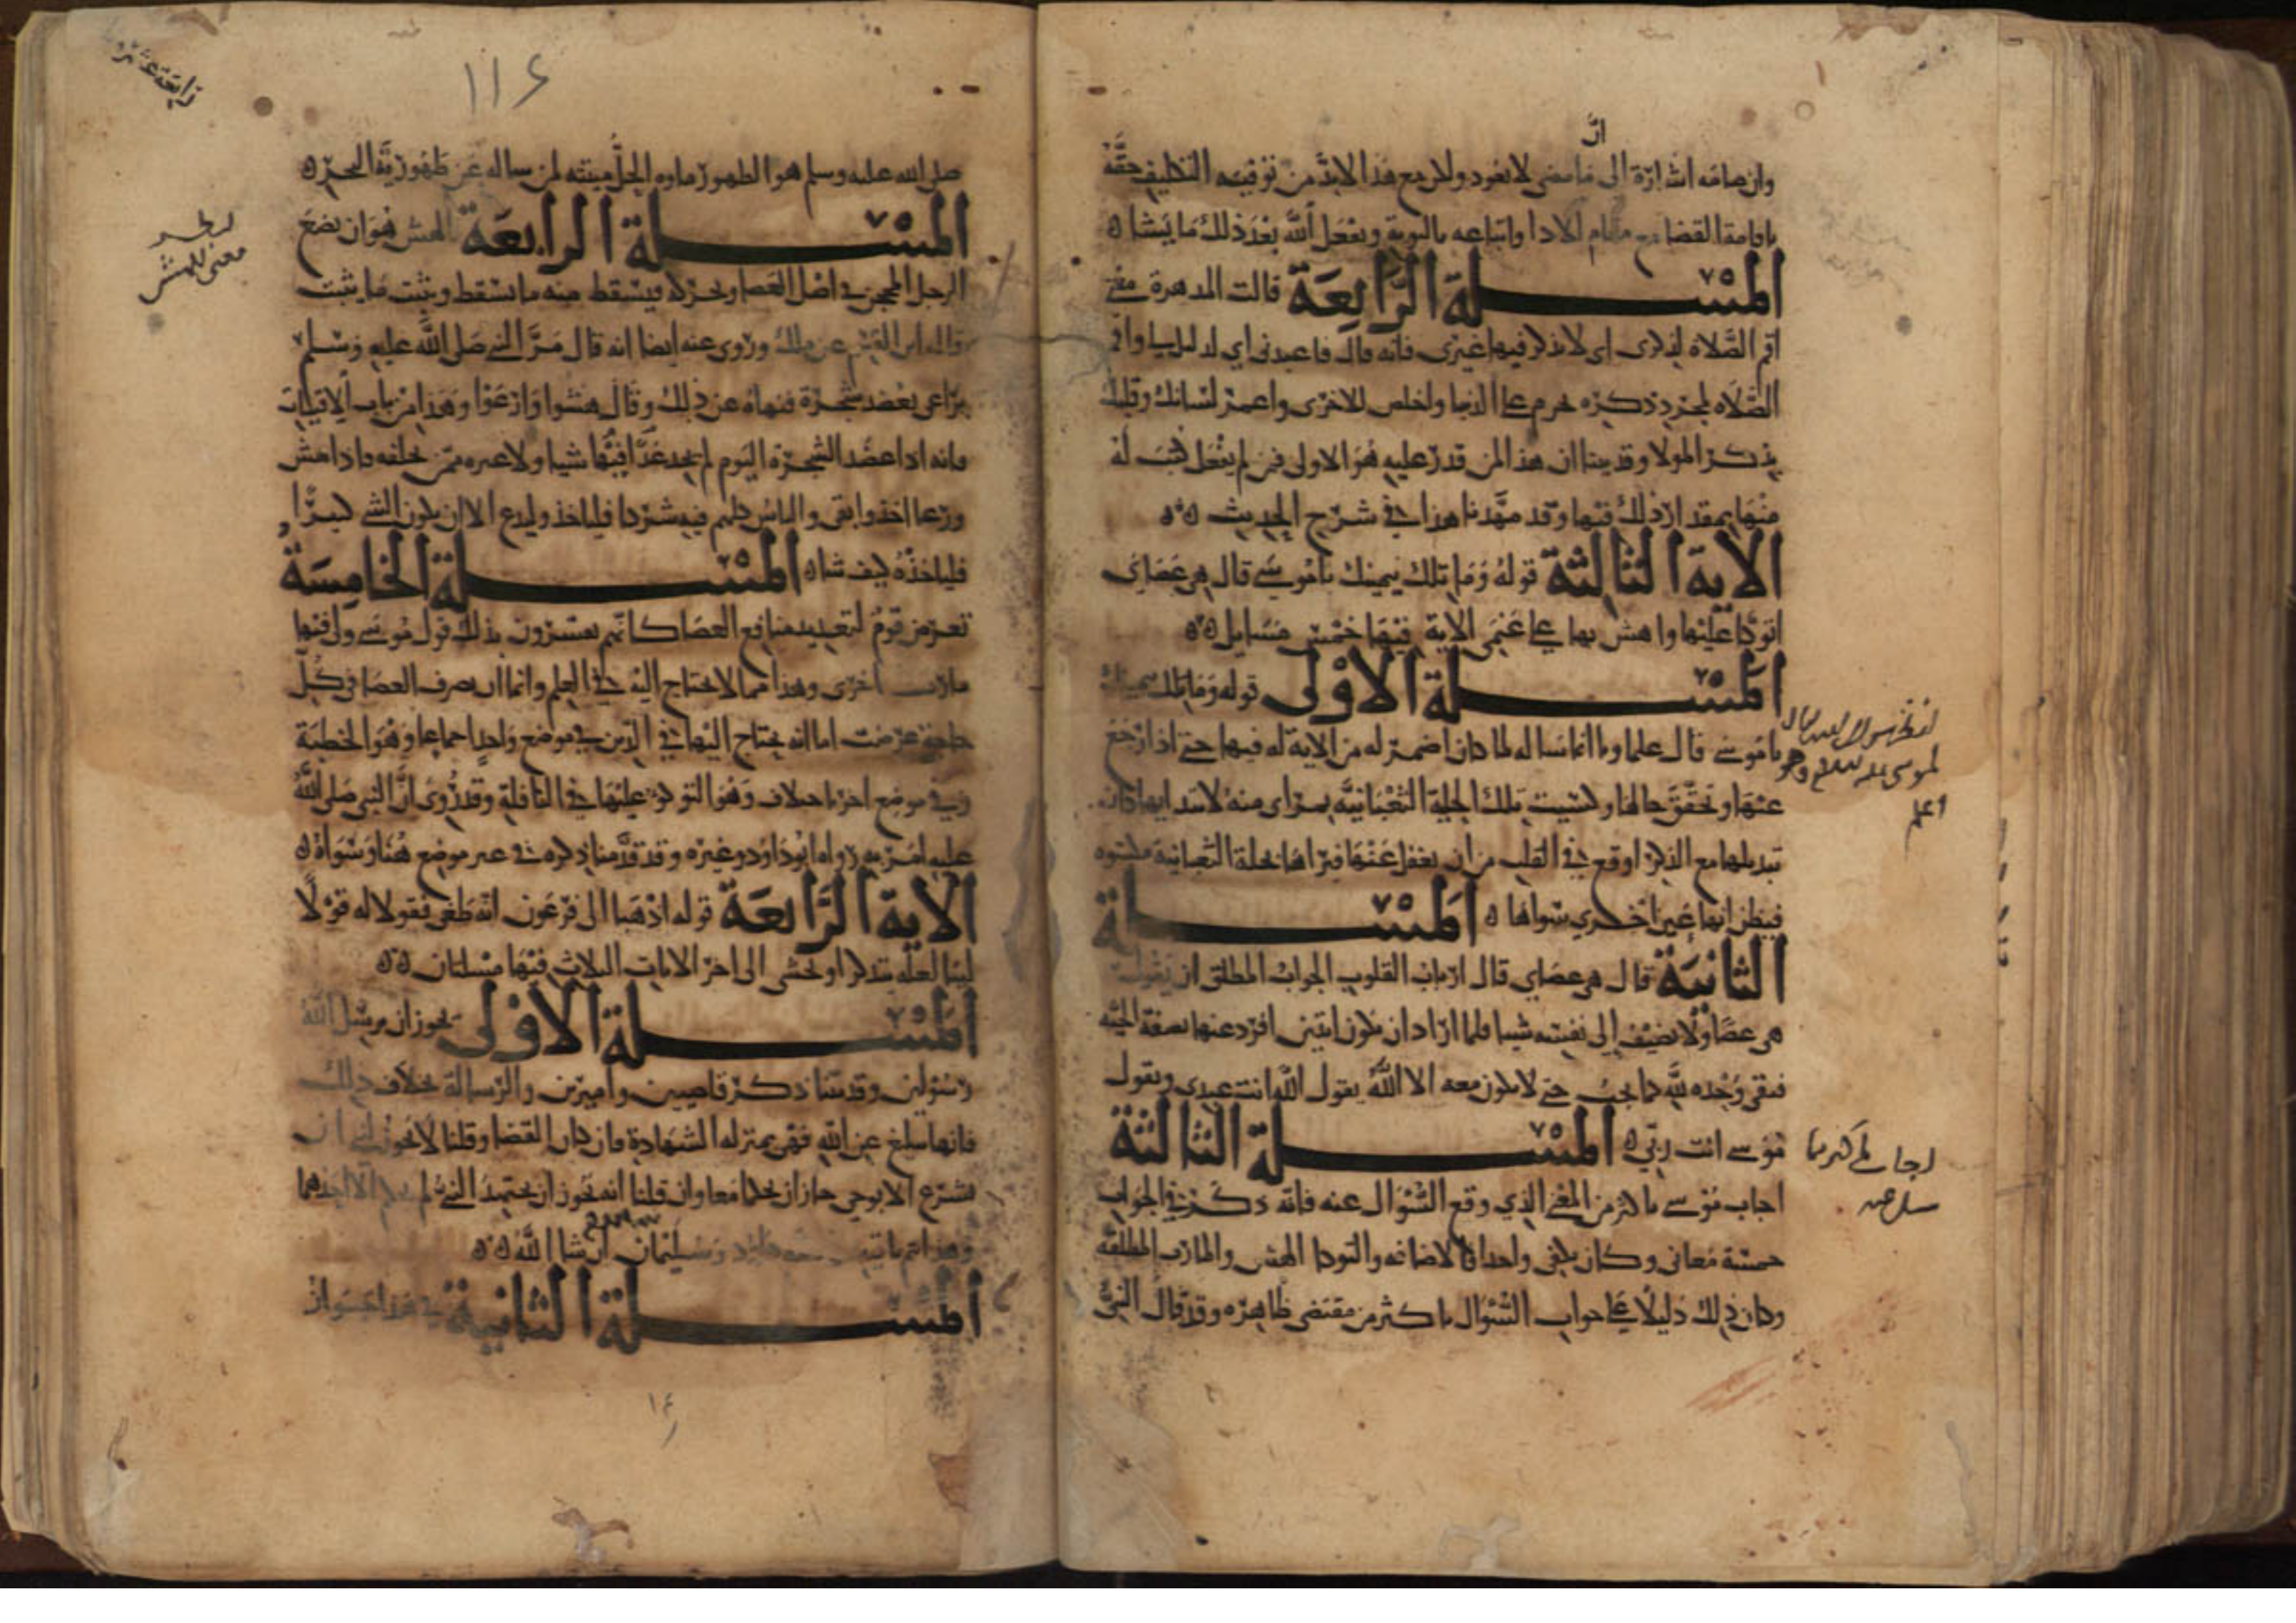 ان
وان صامه اشارة الى ما مضى لا يعود ولا يرجع هذا لابد من توفيه التكليف حقه
باقامة القضا مع مقام الادا واتباعه بالتوبة ويفعل الله بعد ذلك ما يشا
المسلة الرابعة قالت المدهرة معنى
اقم الصلاة لذكرى اى لا تذكر فيها غيرى فانه قال فاعبدنى اي لى واقم
الصلاة لمجرد ذكره يحرم عن الدنيا واخلص للاخرى واعمر لسانك وقلبك
بذكر المولا وقد بينا ان هذا لمن قدر عليه هو الاولى فمن لم يفعل كتب له
منها بمقدار ذلك فيها وقد مهدنا هذا في شرح الحديث
الاية الثالثة قوله وما تلك بيمينك ياموسى قال هي عصاي
اتوكا عليها واهش بها على غنمى الاية فيها خمس مسايل
المسلة الاولى قوله وما تلك بيمينك
ياموسى قال علماونا انما ساله لما كان اضمر له من الاية له فيها حتى اذا رجع
عنها وتحقق حالها وكسيت تلك الحلة الثعبانية بمراى منه لابتدايها كان
تبديلها مع الذكر اوقع في القلب من ان يغفل عنها فيراها بحلة الثعبانية مكسوه
فيظن انها عين اخرى سواها المسلة
الثانية قال هي عصاي قال ارباب القلوب الجواب المطلق ان يقول
هي عصا ولا يضيف الى نفسه شيا فلما اراد ان يكون اثنين افرد عنها بصفة الحية
فبقى وحده لله كما يحب حتى لا يكون معه الا الله يقول الله انت عبدي ويقول
موسى انت ربى المسلة الثالثة
اجاب موسى باكثر من المعنى الذي وقع السوال عنه فانه ذكر في الجواب
خمسة معانى وكان يكفى واحدا الاضافه والتوكا الهش والمارب المطلقة
وكان ذلك دليلا على جواب السوال باكثر من مقتضى ظاهره وقد قال النبى
لموسى عليه السلام وهو
اعلم
سل عنه
رابعة عشر
١١٤
صلى الله عليه وسلم هو الطهور ماوه الحل ميتته لمن ساله عن طهورية البحر
المسلة الرابعة الهش هو ان يضع
الرجل المحجن في اصل الغصن ويحركه فيسقط منه ما سقط ويثبت ما يثبت
قاله ابن القسم عن ملك وروى عنه ايضا انه قال مر النبى صلى الله عليه وسلم
براعى يعضد شجرة فنهاه عن ذلك وقال هشوا وارعوا وهذا من باب الاقتيات
فانه اذا عضد الشجرة اليوم لم يجد غدا فيها شيا ولا غيره ممن يخلفه فاذا هش
ورعا اخذ وابقى والناس كلهم فيه شركا فلياخذ وليدع الا ان يكون الشى كثيرا
فلياخذه كيف شا المسلة الخامسة
تعرض قوم لتعديد منافع العصا كانهم يفسرون بذلك قول موسى ولى فيها
مارب اخرى وهذا مما لا يحتاج اليه في العلم وانما ان يصرف العصا في كل
حاجة عرضت اما انه يحتاج اليها في الدين في موضع واحد اجماعا وهو الخطبة
وفي موضع اخر باختلاف وهو التوكؤ عليها في النافلة وقد روى ان النبى صلى الله
عليه امر به رواه ابو داود وغيره وقد قدمنا ذكره في غير موضع هنا وسواه
الاية الرابعة قوله اذهبا الى فرعون انه طغى فقولا له قولا
لينا لعله يتذكر او يخشى الى اخر الايات الثلاث فيها مسلتان
المسلة الاولى يجوز ان يرسل الله
رسولين وقد بينا ذكر قاضيين واميرين والرسالة بخلاف ذلك
فانها تبليغ عن الله فهى بمنزلة الشهادة فان كان القضا وقلنا لا يجوز لنبى ان
يشرع الا بوحي جاز ان يحكما معا وان قلنا انه يجوز ان يجتهد النبى لم يحكم الا احدهما
وهذا يتم بيانه داود وسليمان ان شا الله
المسلة الثانية في هذا جواز
لطيـ
معنى الهش
١٤